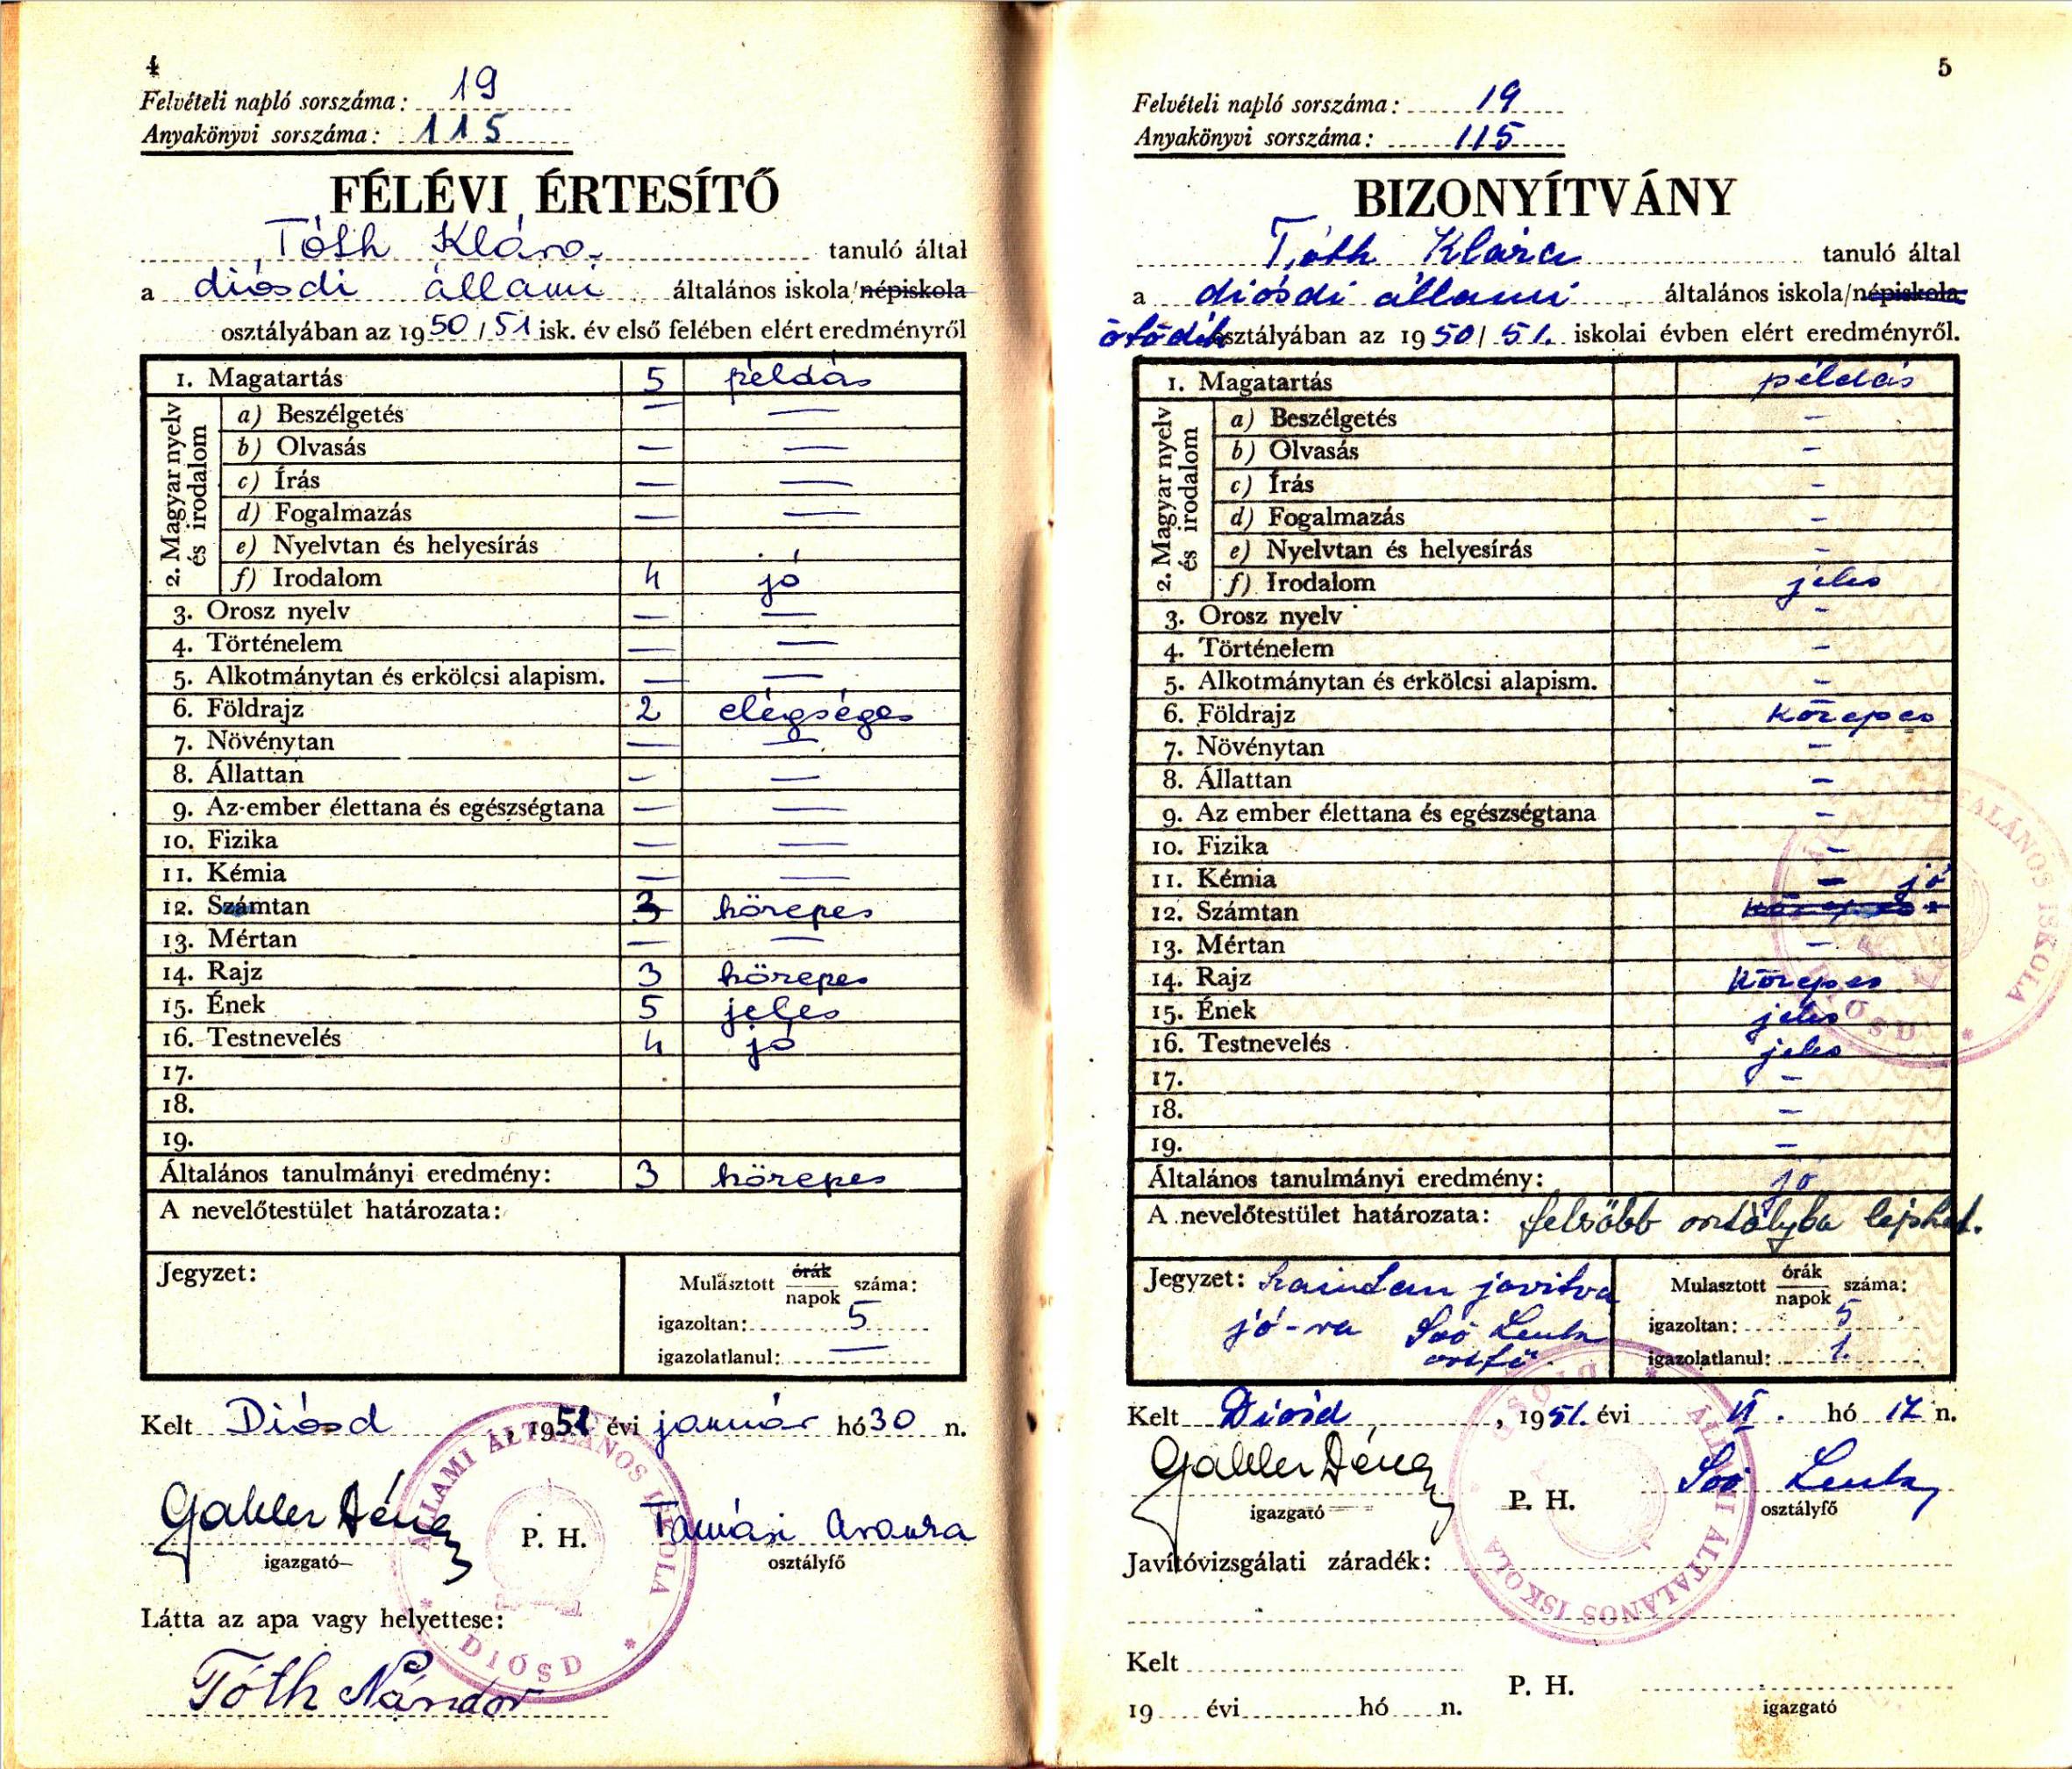 4
Felvételi napló sorszáma: 19
Anyakönyvi sorszáma: 115
FÉLÉVI ÉRTESÍTŐ
Tóth Klára tanuló által
a diósdi állami általános iskola/népiskola
osztályában az 1950/51 isk. év első felében elért eredményről
1. Magatartás 5 példás
2. Magyar nyelv és irodalom
a) Beszélgetés — —
b) Olvasás — —
c) Írás — —
d) Fogalmazás — —
e) Nyelvtan és helyesírás
f) Irodalom 4 jó
3. Orosz nyelv — —
4. Történelem — —
5. Alkotmánytan és erkölcsi alapism. — —
6. Földrajz 2 elégséges
7. Növénytan — —
8. Állattan — —
9. Az ember élettana és egészségtana — —
10. Fizika — —
11. Kémia — —
12. Számtan 3 közepes
13. Mértan — —
14. Rajz 3 közepes
15. Ének 5 jeles
16. Testnevelés 4 jó
17.
18.
19.
Általános tanulmányi eredmény: 3 közepes
A nevelőtestület határozata:
Jegyzet:
Mulasztott órák napok száma:
igazoltan: 5
igazolatlanul: —
Kelt Diósd, 1951 évi január hó 30 n.
Gabler Dénes
igazgató
P. H.
Tamási Aranka
osztályfő
ÁLLAMI ÁLTALÁNOS ISKOLA * DIÓSD *
Látta az apa vagy helyettese:
Tóth Nándor
5
Felvételi napló sorszáma: 19
Anyakönyvi sorszáma: 115
BIZONYÍTVÁNY
Tóth Klára tanuló által
a diósdi állami általános iskola/népiskola
ötödik osztályában az 1950/51. iskolai évben elért eredményről.
1. Magatartás példás
2. Magyar nyelv és irodalom
a) Beszélgetés –
b) Olvasás –
c) Írás –
d) Fogalmazás –
e) Nyelvtan és helyesírás –
f) Irodalom jeles
3. Orosz nyelv –
4. Történelem –
5. Alkotmánytan és erkölcsi alapism. –
6. Földrajz közepes
7. Növénytan –
8. Állattan –
9. Az ember élettana és egészségtana –
10. Fizika –
11. Kémia –
12. Számtan közepes * jó
13. Mértan –
14. Rajz közepes
15. Ének jeles
16. Testnevelés jeles
17. –
18. –
19. –
Általános tanulmányi eredmény: jó
A nevelőtestület határozata: felsőbb osztályba léphet.
Jegyzet: számtan javítva
jó-ra Soó Lenke
osztfő.
Mulasztott órák napok száma:
igazoltan: 5
igazolatlanul: 1.
Kelt Diósd, 1951. évi VI. hó 17 n.
Gabler Dénes
igazgató
P. H.
Soó Lenke
osztályfő
ÁLLAMI ÁLTALÁNOS ISKOLA * DIÓSD *
Javítóvizsgálati záradék:
Kelt
P. H.
19 évi hó n.
igazgató